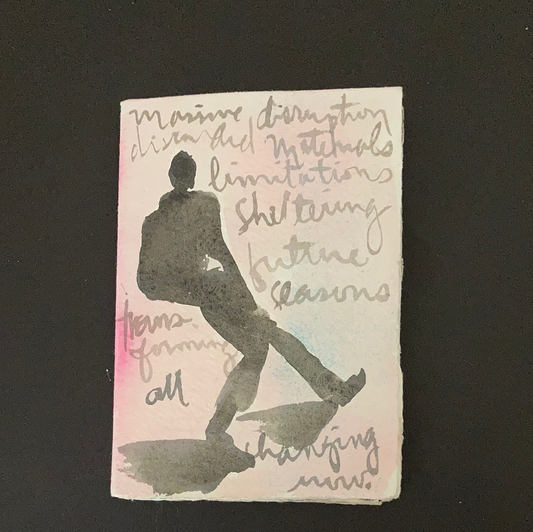 massive disruption
discarded materials
limitations
sheltering
future
seasons
trans-
forming
all
changing
now.